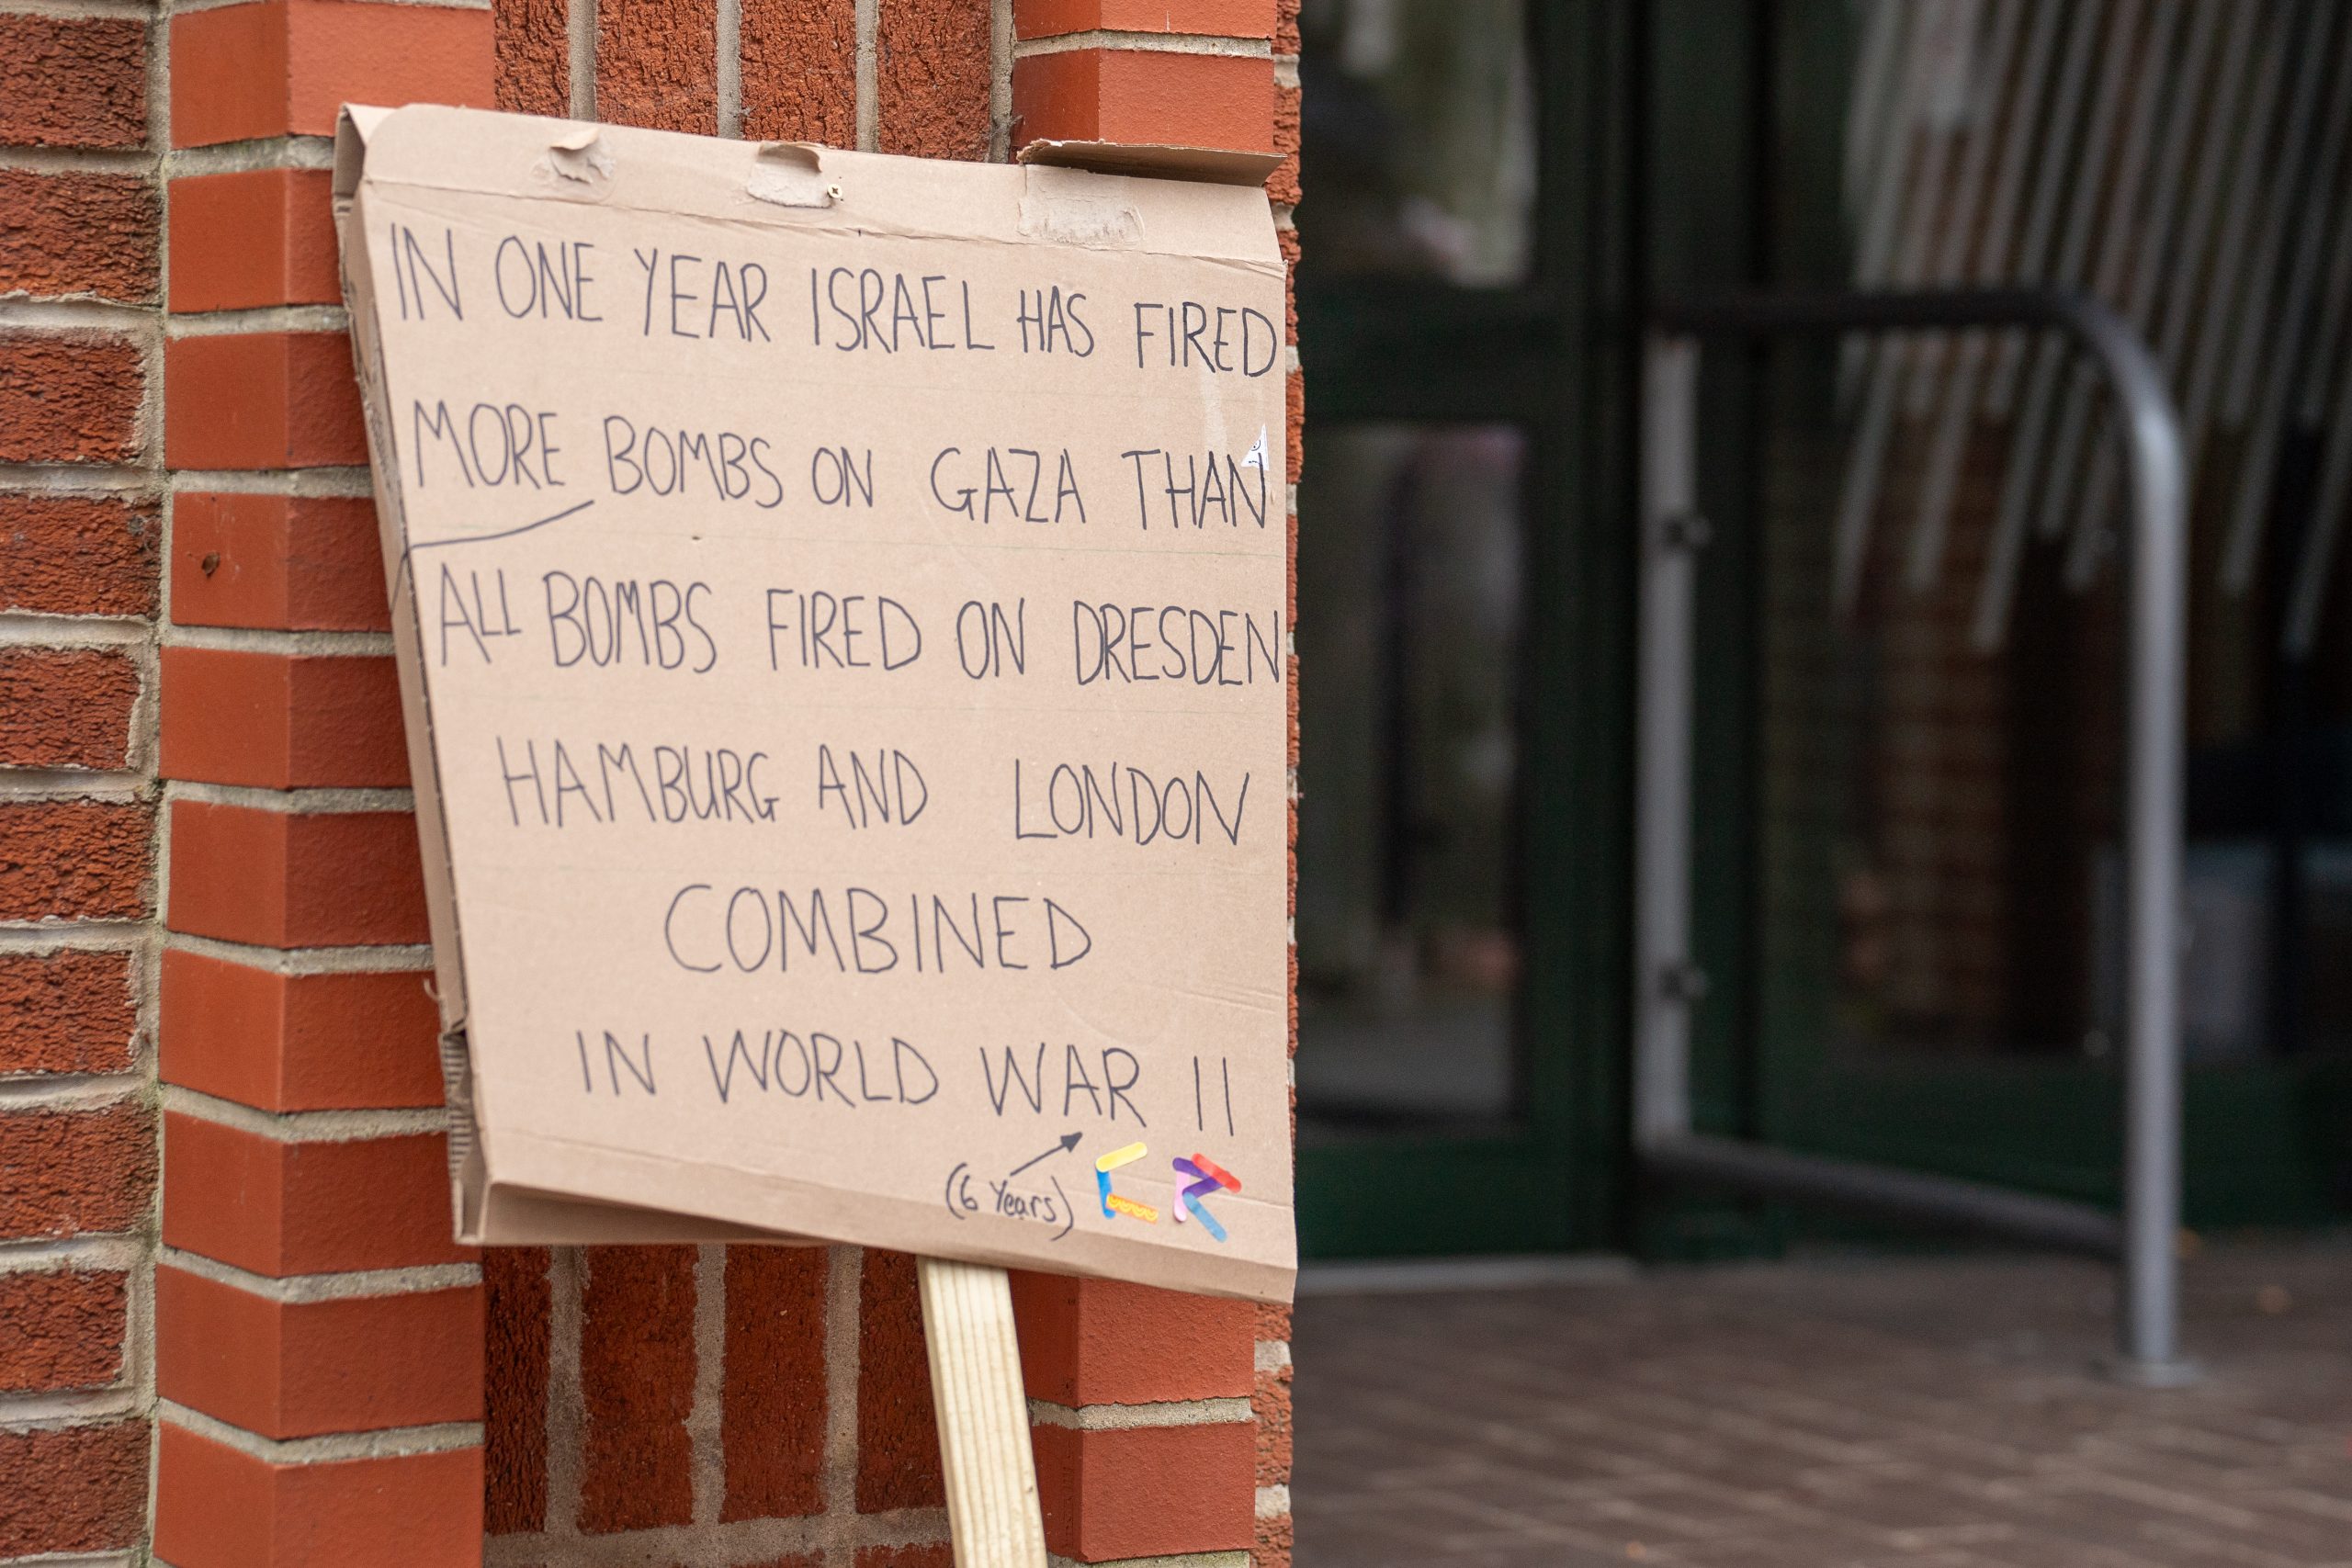 IN ONE YEAR ISRAEL HAS FIRED
MORE BOMBS ON GAZA THAN
ALL BOMBS FIRED ON DRESDEN
HAMBURG AND LONDON
COMBINED
IN WORLD WAR II
(6 Years)